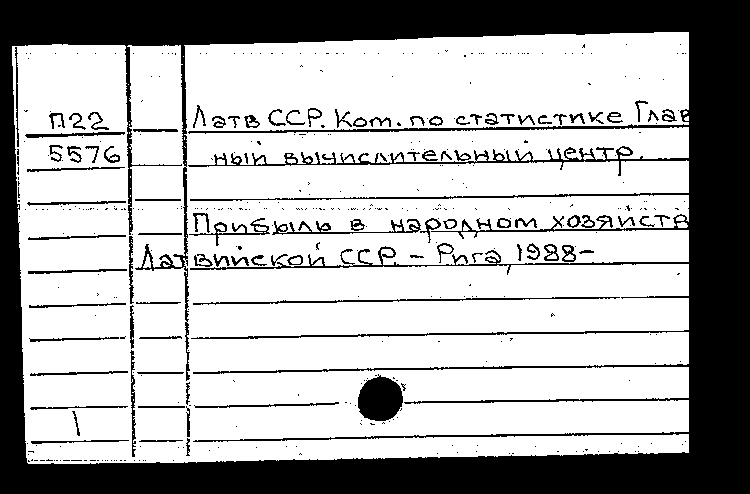 П22 Латв ССР. Ком. по статистике Глав
5576 ный вычислительный центр.
Прибыль в народном хозяйств
Латвийской ССР. – Рига, 1988–
\